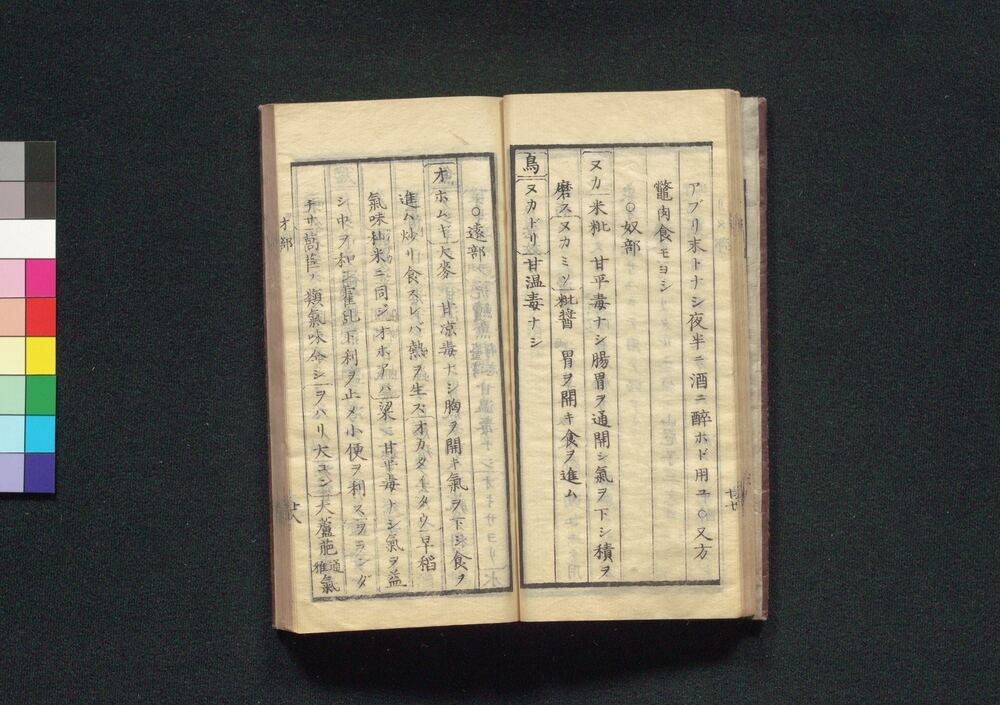 アブリ末トナシ夜半ニ酒ニ醉ホド用ユ○又方
鼈肉食モヨシ
○奴部
ヌカ 米粃 甘平毒ナシ腸胃ヲ通開シ氣ヲ下シ積ヲ
磨ス ヌカミソ 粃醬 胃ヲ開キ食ヲ進ム
鳥 ヌカドリ 甘温毒ナシ
○遠部
オホムギ 大麥 甘凉毒ナシ胸ヲ開キ氣ヲ下シ食ヲ
進ム炒リ食スレバ熱ヲ生ス 早稻
氣味秈米ニ同ジ オホアハ 粱 甘平毒ナシ氣ヲ益
シ中ヲ和 霍乱下利ヲ止メ小便ヲ利ス ヲランダ
チサ 萵苣ノ類氣味仝シ ヲハリ大コン 大蘆萉 通雅 氣
オ部